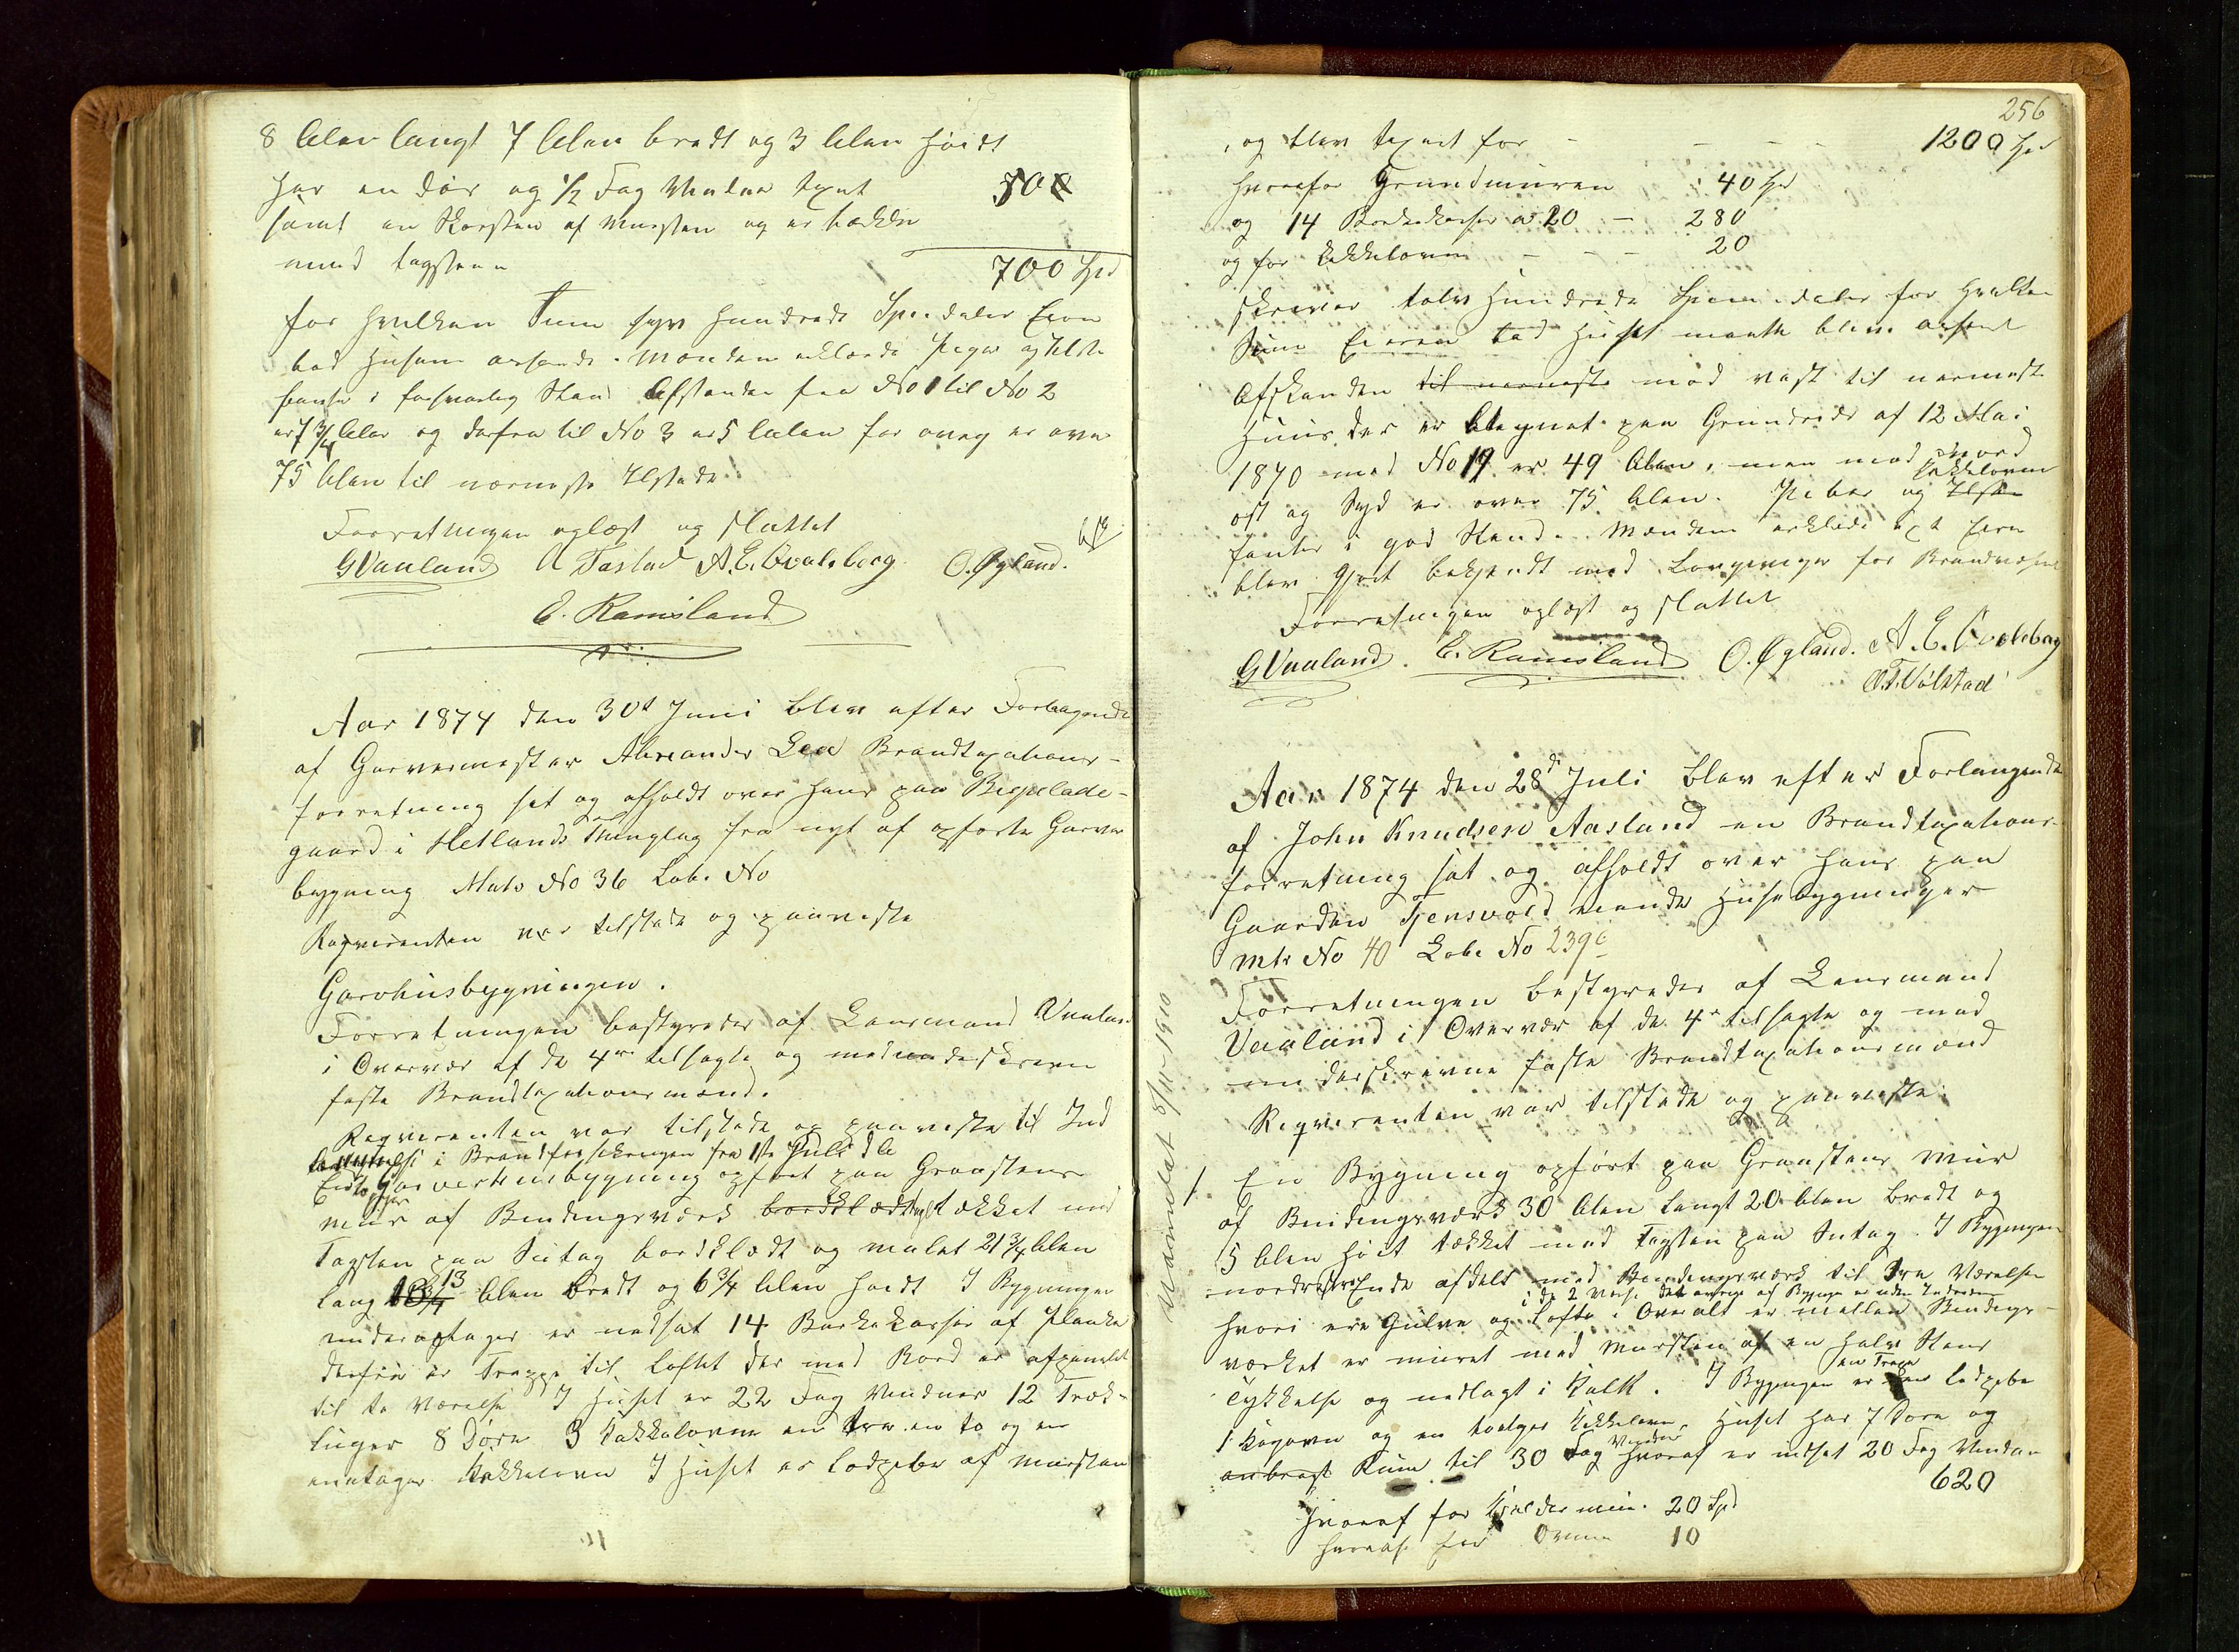 8 Alen langt 7 Alen bredt og 3 Alen høidt
har en Dør og 1/2 Fag Vindue taxt 50
samt en Skorsten af Mursten og er tækket
med tagsteen 700 Spd
for hvilken Sum syv hundrede Spe.daler Eieren
bad Husene ansande. Mændene erklærede Piger og Ilste
i forsvarlig Stand Afstanden fra No 1 til No 2
er 7 3/4 Alen og derfra til No 3 er 5 Alen for øvrig er over
75 Alen til nærmeste Ildsted
Forretningen oplæst og sluttet
G Vaaland A Tastad A. E. Qvaleberg O. Øgland.
E. Ramsland
Aar 1874 den 30te Juni blev efter Forlangende
af Garvermester Alexander Lea Brandtaxations-
forretning sat og afholdt over hans paa Bispelade-
gaard i Hetlands Thinglag fra nyt af opførte Garver
bygning Matr No 36 Løb. No
Reqvirenten var tilstede og paaviste
Garvhusbygningen.
Forretningen bestyredes af Lensmand Vaaland
i Overvær af de 4re tilsagte og medunderskrevne
faste Brandtaxationsmænd.
Reqvirenten var tilstede og paaviste til Ind
i Brandforsikringen fra 1ste Juli d A
En to Garverhusbygning opført paa Graasteens
muur af Bindingsværk bordklædt tækket med
Tagsten paa Sutag bordklædt og malet 21 3/4 Alen
lang 18 3/4 13 Alen Bredt og 6 3/4 Alen høidt I Bygningen
underetager er nedsat 14 Barkekasser af Planke
derfra er Trappe til Loftet der med Bord er afpanelet
til to Værelse I Huset er 22 Fag Vinduer 12 Træk-
luger 8 Døre 3 Kakkelovne en tre en to og en
enetages Kakkelovn I Huset er Lodpibe af Mursten
256
og blev taxeret for - - - 1200 Spd
hvoraf for Grundmuren 40 Spd
og 14 Barkekasser a 20 - 280
og for Kakkelovne - - - 20
skriver tolv Hundrede Specie daler for hvilken
Sum Eieren bad Huset maatte blive ansat
Afstanden til nærmeste mod vest til nærmeste
Huus der er betegnet paa Grundrids af 12 Mai
1870 med No 19 er 49 Alen, men mod Nord
ost og Syd er over 75 Alen. Piber og Ilste Kakkelovne
fantes i god Stand. Mændene erklærede at Eieren
blev gjort bekjendt med Lovgivninger for Brandvæsenet
Forretningen oplæst og sluttet
G Vaaland. E. Ramsland O. Øgland. A. E. Qvaleberg
O. T. Vølstad
Aar 1874 den 28de Juli blev efter Forlangende
af John Knudsen Aasland en Brandtaxations-
forretning sat og afholdt over hans paa
Gaarden Tjensvold eiende Husebygninger
Mtr No 40 Løbe No 239c
Forretningen bestyredes af Lensmand
Vaaland i Overvær af de 4re tilsagte og med
underskrevne faste Brandtaxationsmænd
Reqvirenten var tilstede og paaviste:
1. En Bygning opført paa Graasteens Muur
af Bindingsværk 30 Alen langt 20 Alen Bredt og
5 Alen høit tækket med Tagsten paa Sutag. I Bygningen
nordvestre Ende afdelt med Bindingsværk til tre Værelser
i de 2 det øvrige af Bygn. er uden Indredn.
hvori ere Gulve og Lofte. Overalt er mellem Bindings-
værket er muret med Mursten af en halv Steens
Tykkelse og nedlagt i Kalk. I Bygningen er en Lodpibe
en Trappe
1 Kogovn og en toetages Kakkelovn. Huset har 7 Døre og
anbragt Rum til 30 Fag Vinduer hvoraf er indsat 20 Fag Vinduer
620
Hvoraf for Kjeldermuur 20 Spd
hvoraf for Ovnene 10
Udmeldt 8/11 1910